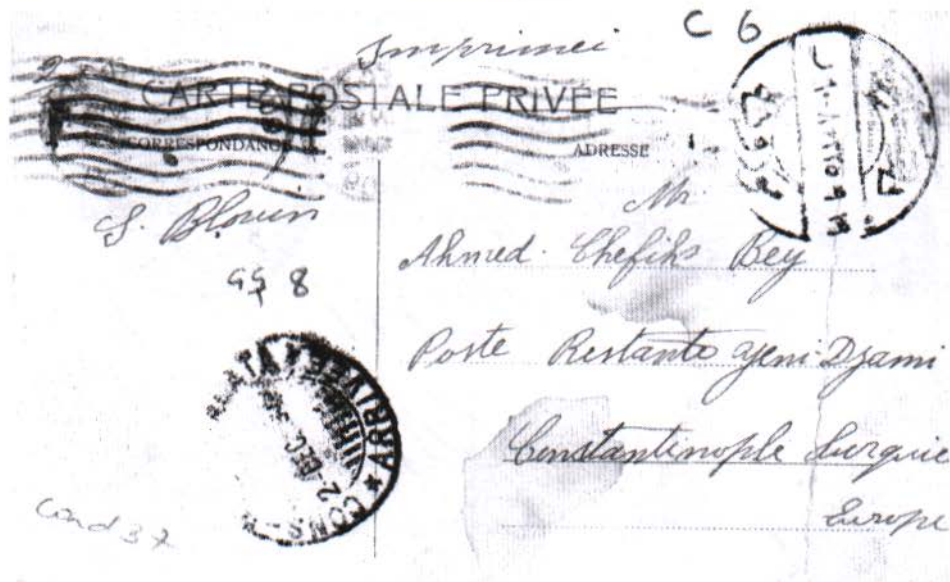 C 6
Imprimei
CARTE POSTALE PRIVÉE
CORRESPONDANCE
ADRESSE
S. Blouin
Mr
Ahmed. Chefiks Bey
8
Poste Restante yeni Djami
Constantinople Turquie
Europe
ARRIVEE
2 DEC
CONS